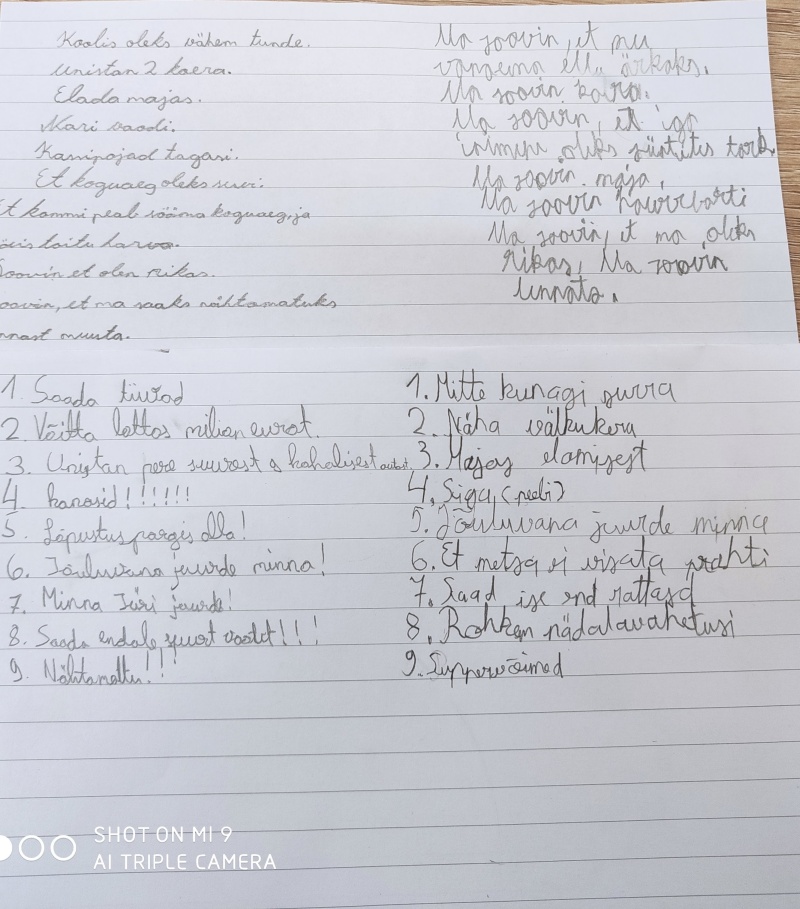 Koolis oleks vähem tunde.
Unistan 2 koera.
Elada majas.
Mari voodi.
Kassipojad tagasi.
Et koguaeg oleks suvi.
Et kommi peale sööma koguaeg, ja
toitu harva.
Soovin et olen rikas.
soovin, et ma saaks nähtamatuks
ennast muuta.
Ma soovin, et mu
vanaema ellu ärkaks.
Ma soovin koira.
Ma soovin, et iga
inimene oleks süntitus tark.
Ma soovin maja.
Ma soovin
Ma soovin, et ma oleks
rikas, Ma soovin
linnata.
1. Saada tiivad
2. Võitta lottos milion eurot.
3. Unistan pere suurest a kohalisest autost.
4. kanasid!!!!!!
5. Lõpustuspargis olla!
6. Jõuluvana juurde minna!
7. Minna Jüri juurde!
8. Saada endale suurt voodit!!!
9. Nähtamattu!!!
1. Mitte kunagi surra
2. Näha välkukera
3. Majas elamisest
4. Siga, (peeli)
5. Jõuluvana juurde minna
6. Et metsa ei visata prahti
7. Saad ise end rattasd
8. Rohkem nädalavahetusi
9. Suppervõimed
SHOT ON MI 9
AI TRIPLE CAMERA